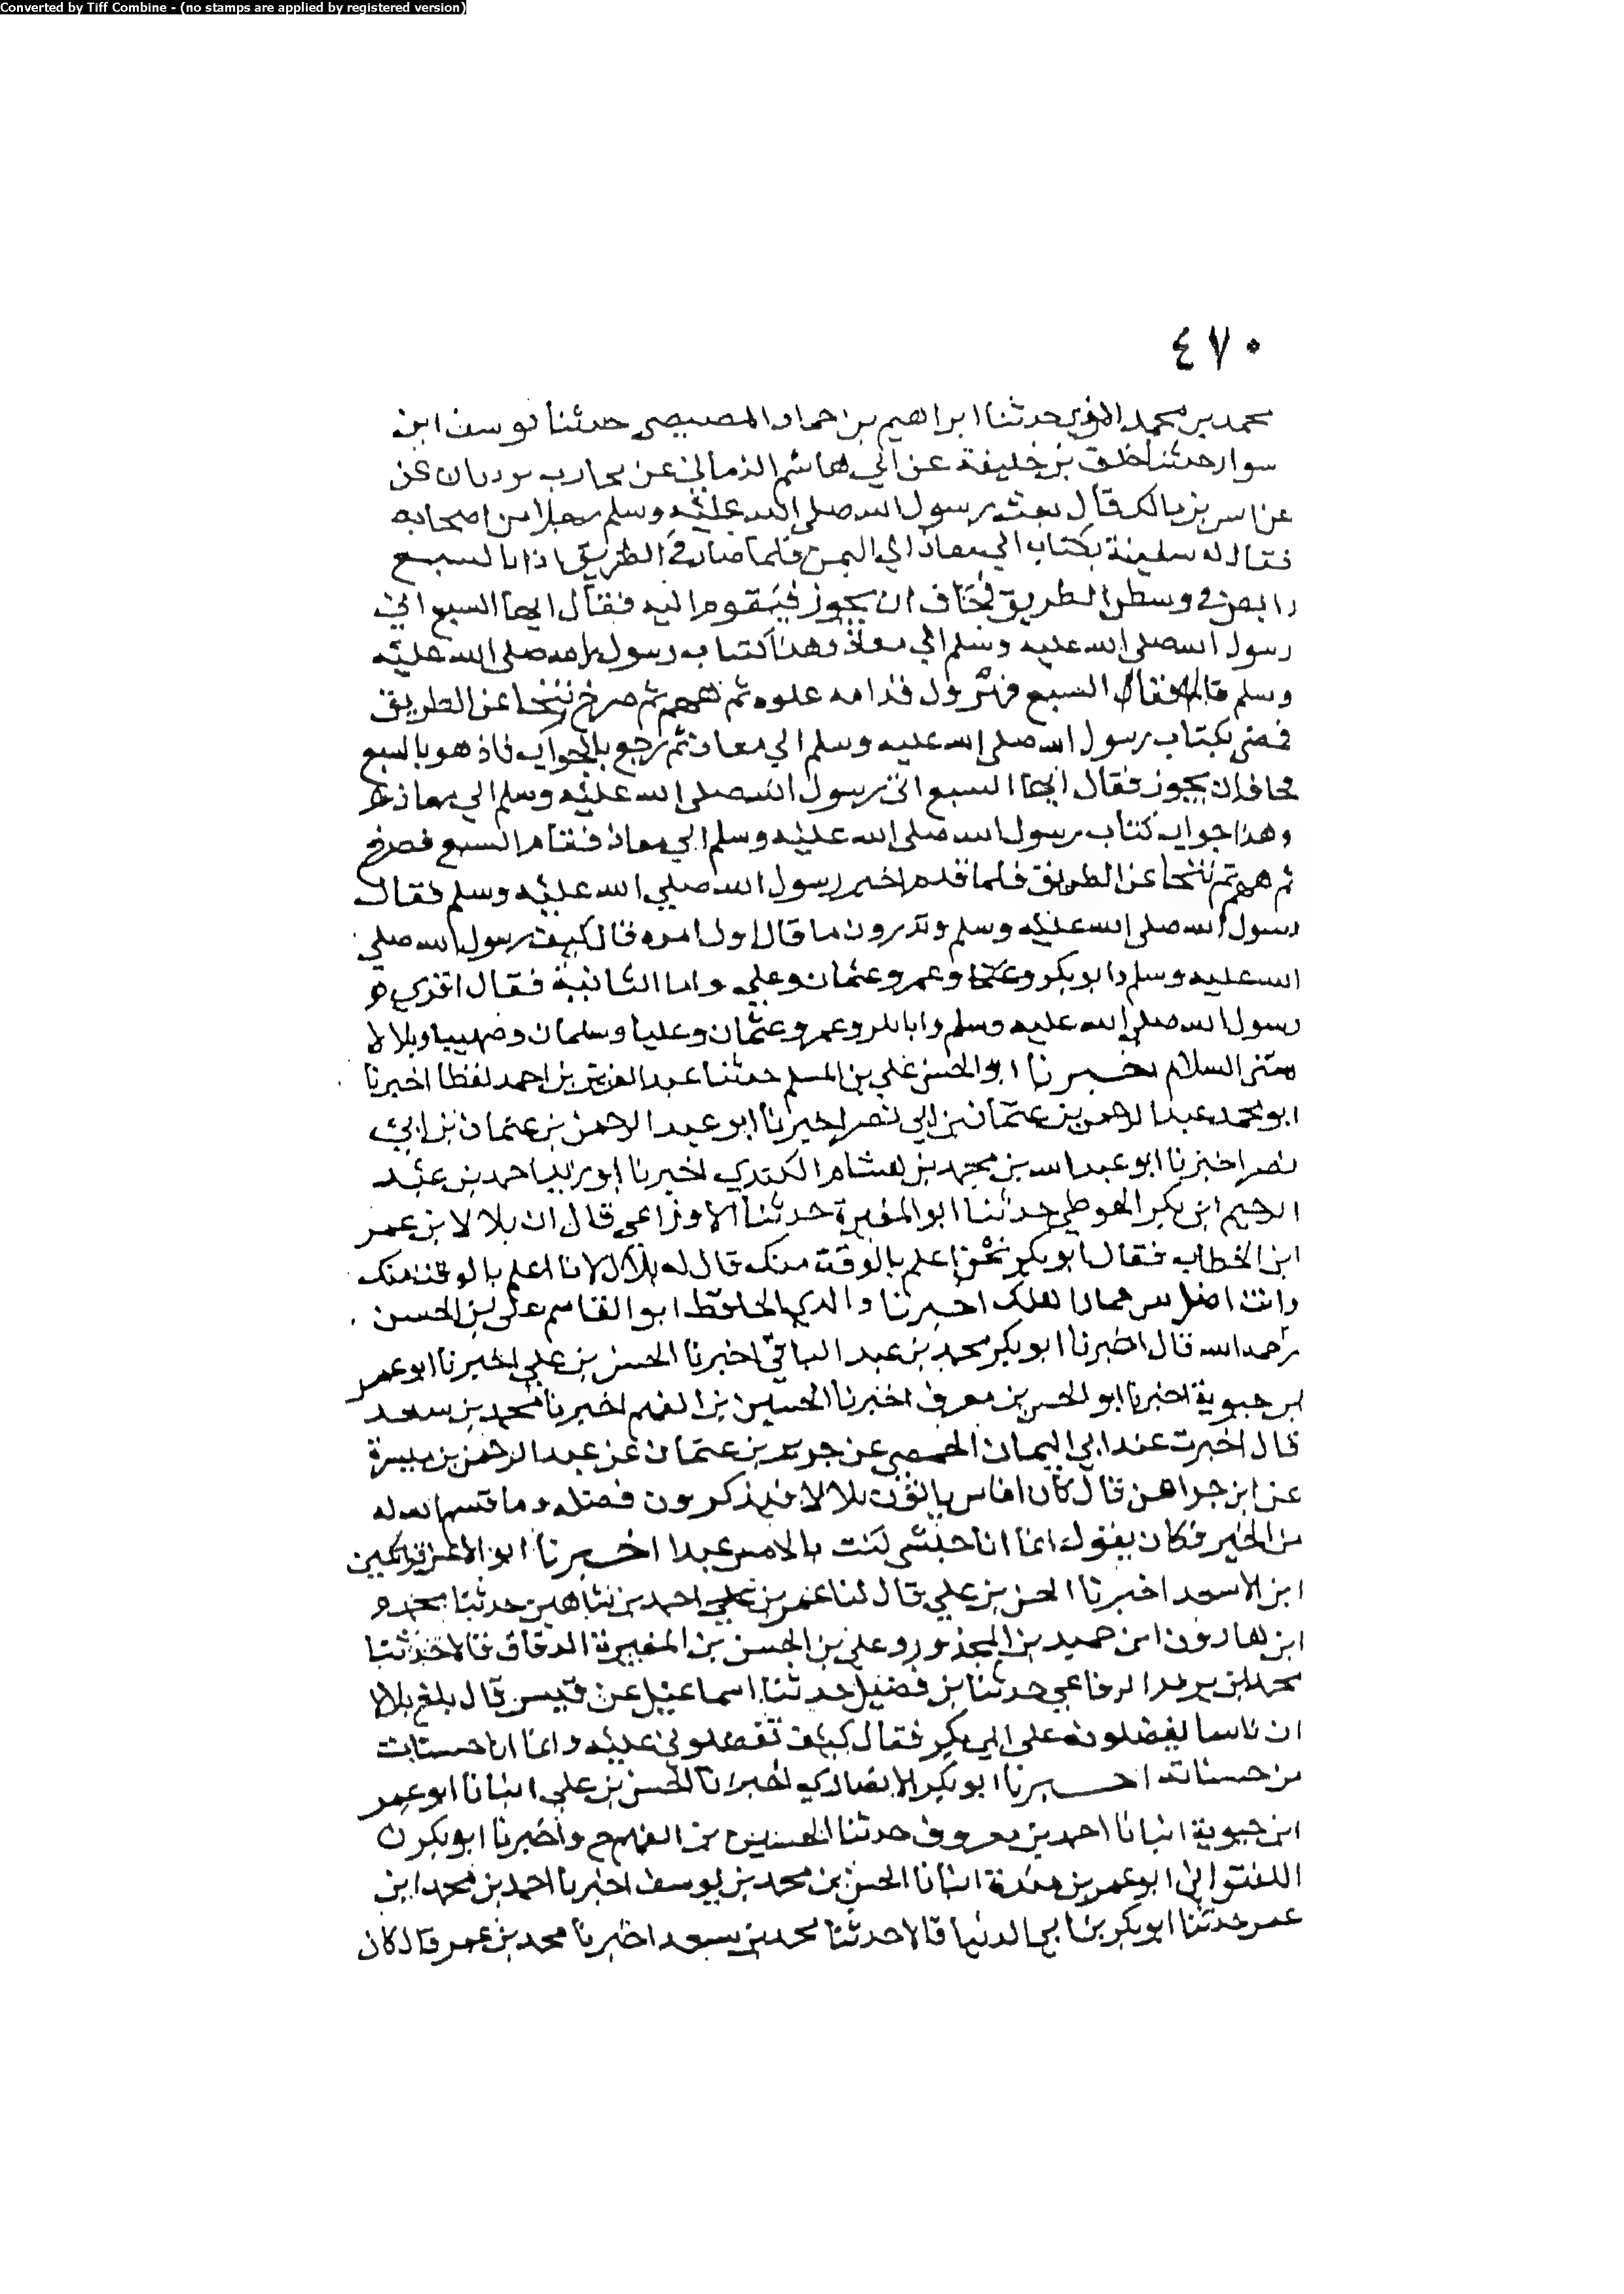 Converted by Tiff Combine - (no stamps are applied by registered version)
٤٧٠
محمد بن محمد حدثنا ابراهيم بن حماد المصيصي حدثنا يوسف ابن
سوار حدثنا خلف بن خليفة عن ابي هاشم الرماني عن محارب بن دثار عن
عن انس بن مالك قال بعث رسول الله صلى الله عليه وسلم رجلا من اصحابه
فقال له سفينة بكتاب الي معاذ الي اليمن فلما صار في الطريق اذا بالسبع
رابض في وسط الطريق فخاف ان يجوز فيقوم اليه فقال ايها السبع اني
رسول الله صلى الله عليه وسلم الي معاذ وهذا كتاب رسول الله صلى الله عليه
وسلم قال فقام السبع فهرول قدامه غلوه ثم همهم ثم صرخ ثم تنحا عن الطريق
فمضى بكتاب رسول الله صلى الله عليه وسلم الي معاذ ثم رجع بالجواب فاذ هو بالسبع
فخاف ان يجوز فقال ايها السبع اني رسول الله صلى الله عليه وسلم الي معاذ
وهذا جواب كتاب رسول الله صلى الله عليه وسلم الي معاذ فقام السبع فصرخ
ثم همهم ثم تنحا عن الطريق فلما قدم اخبر رسول الله صلي الله عليه وسلم فقال
رسول الله صلى الله عليه وسلم وتدرون ما قال اول امره قال كيف رسول الله صلي
الله عليه وسلم وابو بكر وعمر وعثمان وعلي واما الثانية فقال اقري
رسول الله صلى الله عليه وسلم وابا بكر وعمر وعثمان وعليا وسلمان وصهيبا وبلالا
مني السلام اخبرنا ابو الحسن علي بن المسلم حدثنا عبد العزيز بن احمد لفظا اخبرنا
ابو محمد عبد الرحمن بن عثمان بن ابي نصر اخبرنا ابو عبد الرحمن بن عثمان بن ابي
نصر اخبرنا ابو عبد الله بن محمد بن هشام الكندي اخبرنا ابو زيد احمد بن عبد
الرحيم ابن بكر الحوطي حدثنا ابو المغيرة حدثنا الاوزاعي قال ان بلالا بن عمر
ابن الخطاب فقال ابو بكر نحن اعلم بالوقت منك قال له بلال لانا اعلم بالوقت منك
وانت اضل من حمار اهلك اخبرنا والدي الحافظ ابو القاسم علي بن الحسن
رحمه الله قال اخبرنا ابو بكر محمد بن عبد الباقي اخبرنا الحسن بن علي اخبرنا ابو عمر
ابن حيوية اخبرنا ابو الحسن بن معروف اخبرنا الحسين بن الفهم اخبرنا محمد بن سعد
قال اخبرت عند ابي اليمان الحمصي عن جرير بن عثمان عن عبد الرحمن بن ميسرة
عن ابن مراهن قال كان اناس ياتون بلالا فيذكرون فضله وما قسم الله له
من الخير فكان يقول انما انا حبشي كنت بالامس عبدا اخبرنا ابو الاعز قراتكين
ابن الاسعد اخبرنا الحسن بن علي قال لنا عمر بن علي احمد بن شاهين حدثنا محمد
ابن هارون ابن حميد بن المجدور وعلي بن الحسن بن المغيرة الدقاق قالا حدثنا
محمد بن يزيد الرفاعي حدثنا بن فضيل حدثنا اسماعيل عن قيس قال بلغ بلالا
ان ناسا يفضلونه على ابي بكر فقال كيف تفضلوني عليه وانما انا حسنات
من حسناته اخبرنا ابو بكر الانصاري اخبرنا الحسن بن علي انبانا ابو عمر
ابن حيوية انبانا احمد بن معروف حدثنا الحسين بن الفهم ح واخبرنا ابو بكر
اللفتواني ابو عمر بن مندة انبانا الحسن بن محمد بن يوسف اخبرنا احمد بن محمد ابن
عمر حدثنا ابو بكر بن ابي الدنيا قالا حدثنا محمد بن سعد اخبرنا محمد بن عمر قال كان